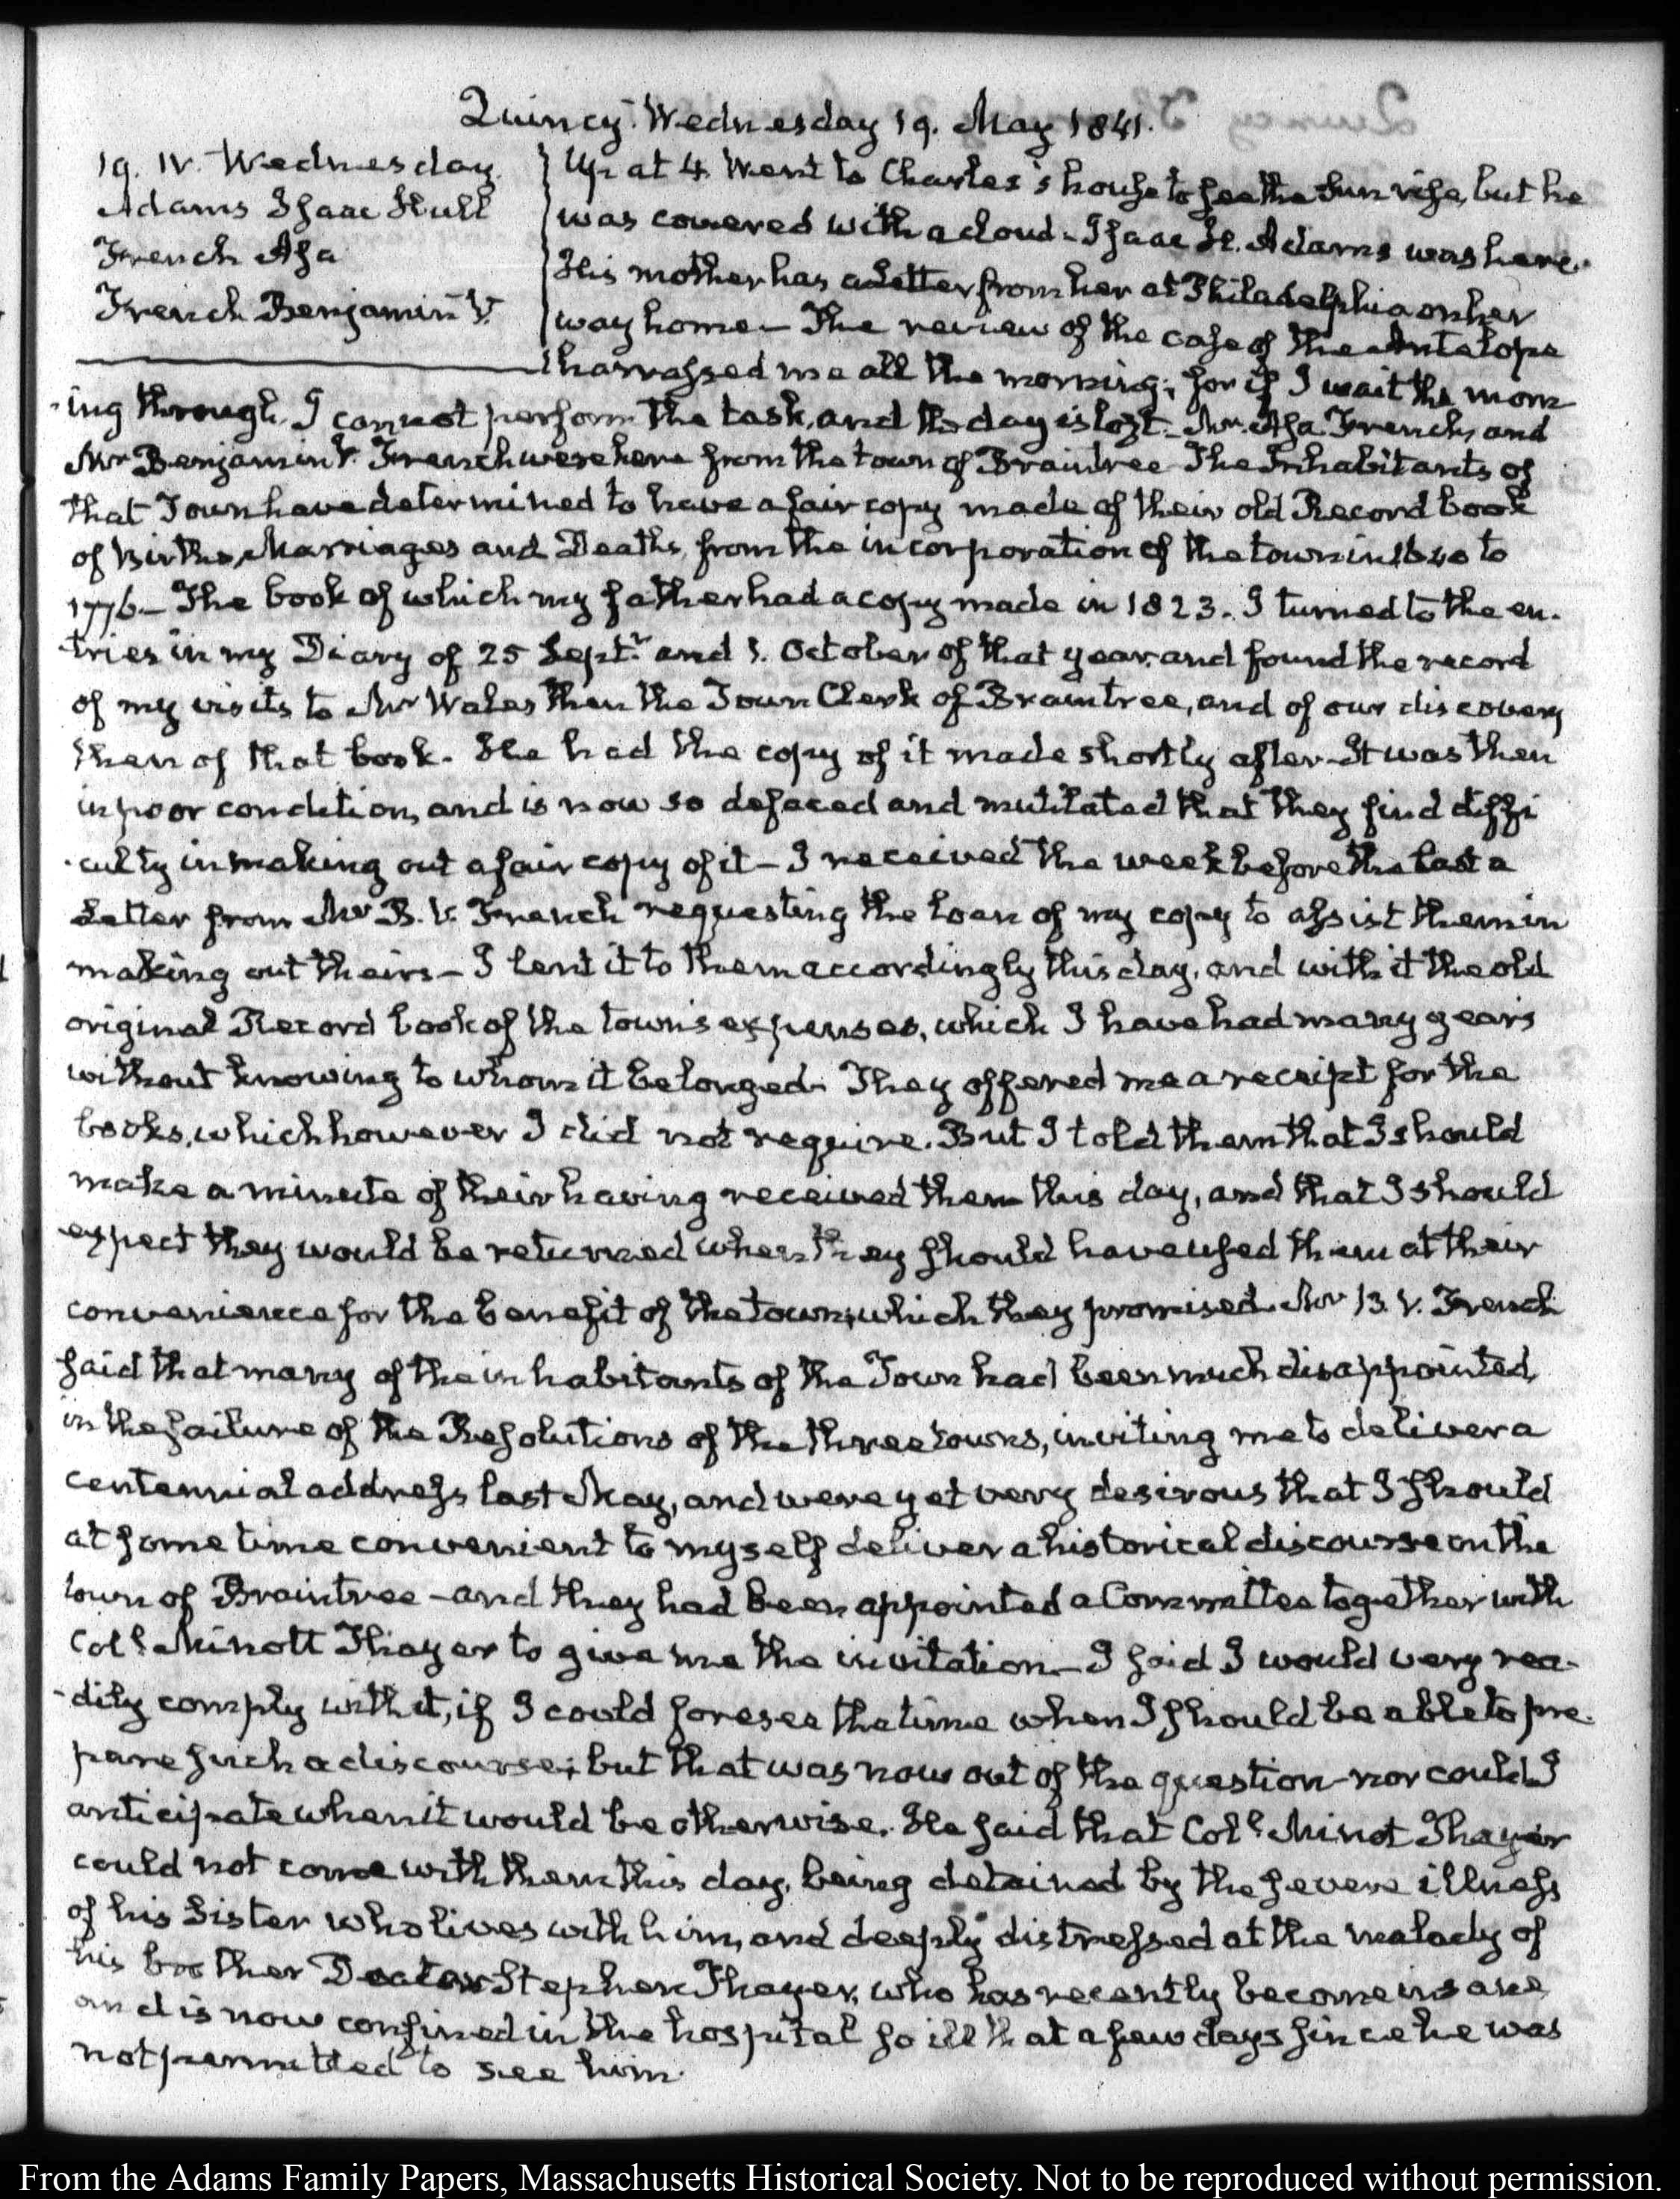 Quincy. Wednesday 19. May 1841.
19. IV. Wednesday.
Adams Isaac Hull
French Asa
French Benjamin V.
Up at 4. Went to Charles's house to see the Sun rise, but he
was covered with a cloud. Isaac H. Adams was here.
His mother has a Letter from her at Philadelphia on her
way home— The review of the case of the Antelope
harrassed me all the morning; for if I wait the morn
-ing through, I cannot perform the task, and the day is lost— Mr. Asa French, and
Mr Benjamin V. French were here from the town of Braintree The Inhabitants of
that Town have determined to have a fair copy made of their old Record book
of Births, Marriages and Deaths, from the incorporation of the town in 1640 to
1776.— The book of which my father had a copy made in 1823. I turned to the en-
-tries in my Diary of 25 Septr. and 1. October of that year, and found the record
of my visits to Mr Wales then the Town Clerk of Braintree, and of our discovery
then of that book. He had the copy of it made shortly after— It was then
in poor condition, and is now so defaced and mutilated that they find diffi
-culty in making out a fair copy of it— I received the week before the last a
Letter from Mr B. V. French requesting the loan of my copy to assist them in
making out theirs— I lent it to them accordingly this day, and with it the old
original Record book of the town's expenses, which I have had many years
without knowing to whom it belonged. They offered me a receipt for the
books, which however I did not require. But I told them that I should
make a minute of their having received them this day, and that I should
expect they would be returned when they should have used them at their
convenience for the benefit of the town; which they promised. Mr B. V. French
said that many of the inhabitants of the Town had been much disappointed,
in the failure of the Resolutions of the three towns, inviting me to deliver a
centennial address last May, and were yet very desirous that I should
at some time convenient to myself deliver a historical discourse on the
town of Braintree— and they had been appointed a Committee together with
Coll. Minott Thayer to give me the invitation— I said I would very rea-
-dily comply with it, if I could foresee the time when I should be able to pre-
pare such a discourse; but that was now out of the question— nor could I
anticipate when it would be otherwise. He said that Coll. Minot Thayer
could not come with them this day, being detained by the severe illness
of his Sister who lives with him, and deeply distressed at the malady of
his brother Doctor Stephen Thayer, who has recently become insane
and is now confined in the hospital so ill that a few days since he was
not permitted to see him.
From the Adams Family Papers, Massachusetts Historical Society. Not to be reproduced without permission.